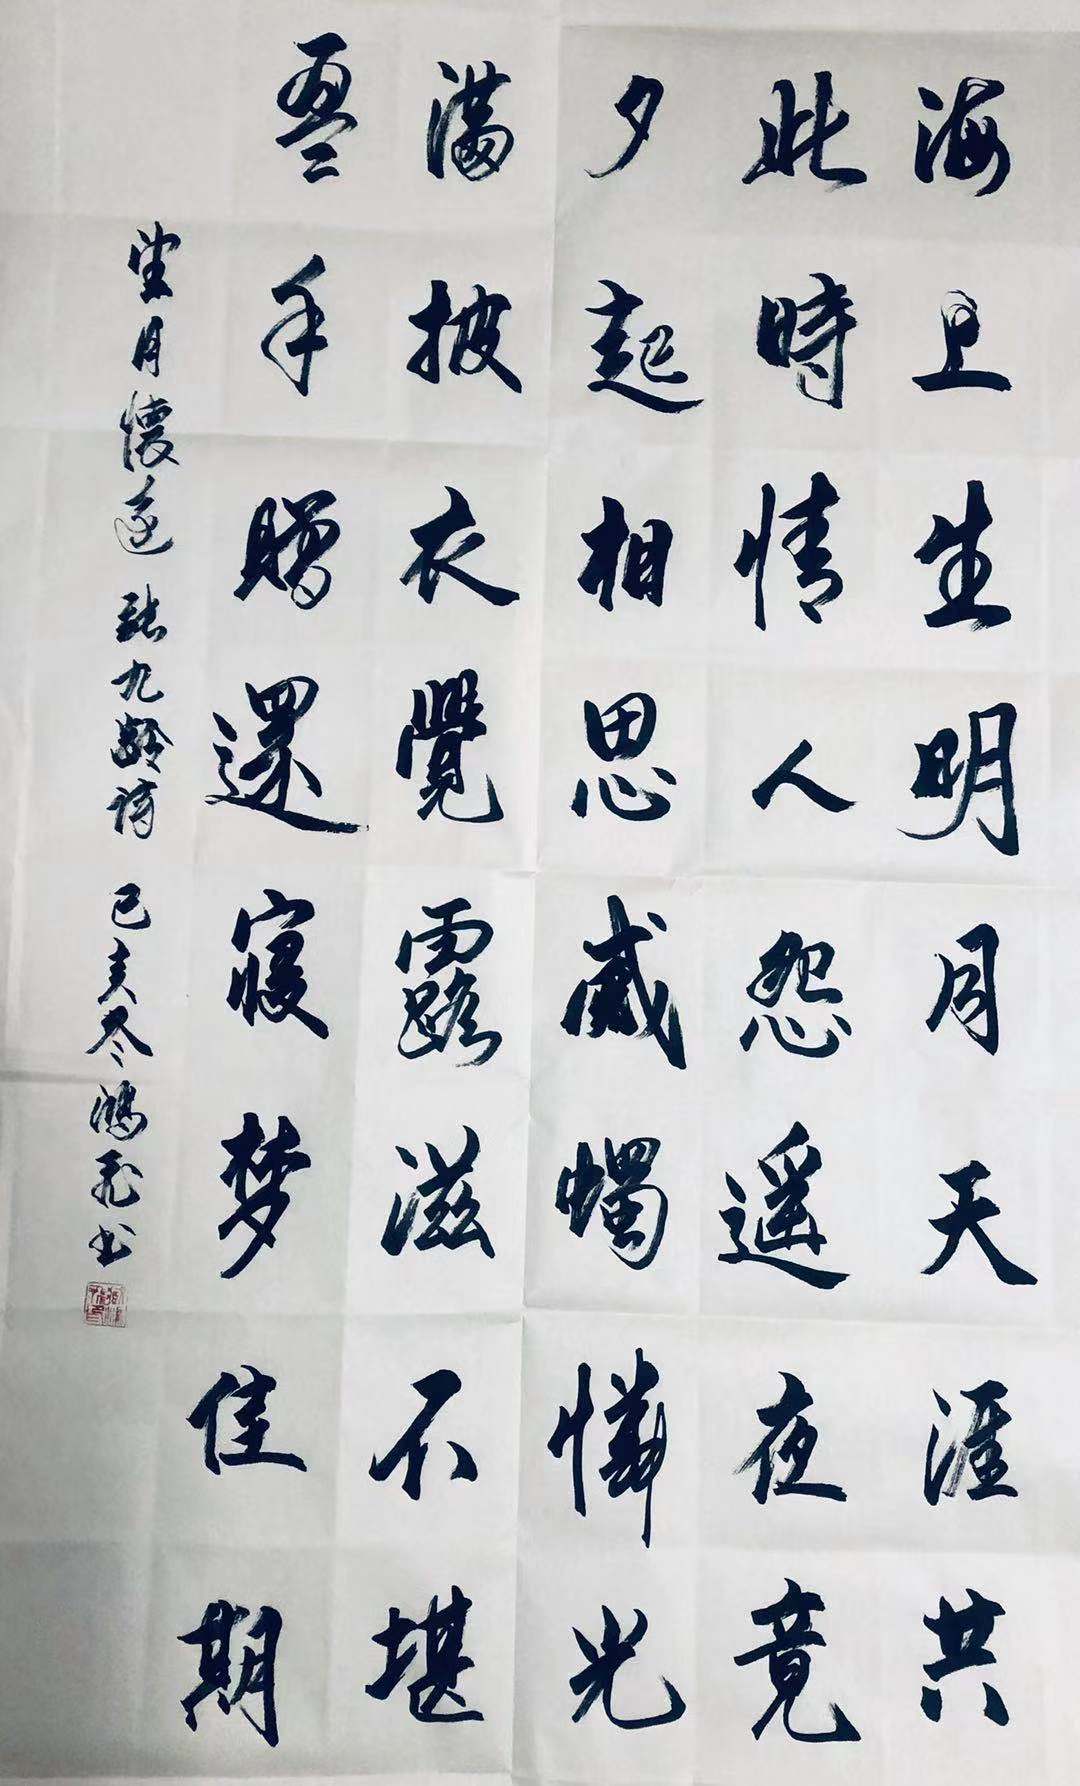 海上生明月天涯共
此時情人怨遥夜竟
夕起相思滅燭憐光
满披衣覺露滋不堪
盈手贈還寢梦佳期
望月懷遠 張九齡詩 己亥冬鴻飛书